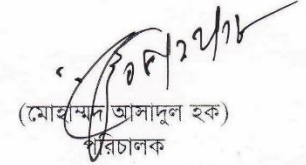 (মোহাম্মদ আসাদুল হক)
পরিচালক